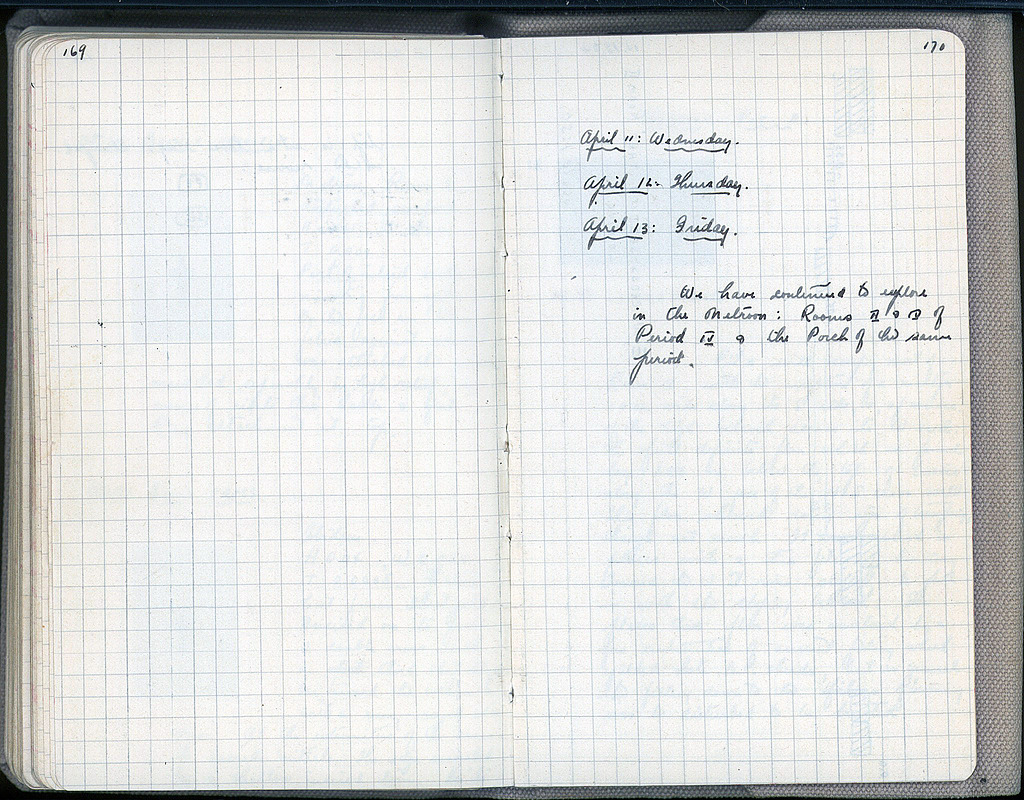 169
170
April 11: Wednesday.
April 12: Thursday.
April 13: Friday.
We have continued to explore
in the Metroon: Rooms II & V of
Period IV & the Porch of the same
period.